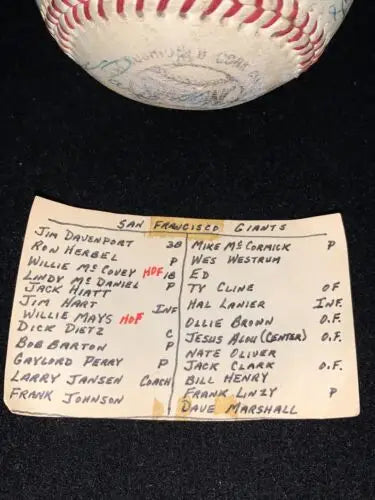 SAN FRANCISCO GIANTS
JIM DAVENPORT 3B
RON HERBEL P
WILLIE McCOVEY HOF 1B
LINDY McDANIEL P
JACK HIATT
JIM HART INF
WILLIE MAYS HOF
DICK DIETZ C
BOB BARTON P
GAYLORD PERRY P
LARRY JANSEN COACH
FRANK JOHNSON
MIKE McCORMICK P
WES WESTRUM
ED
TY CLINE OF
HAL LANIER INF.
OLLIE BROWN O.F.
JESUS ALOU (CENTER) O.F.
NATE OLIVER
JACK CLARK O.F.
BILL HENRY
FRANK LINZY P
DAVE MARSHALL